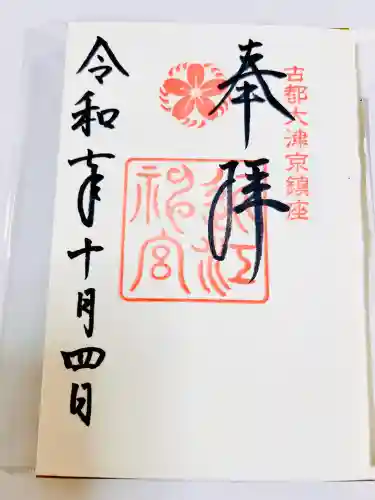 古都大津京鎮座
奉拝
近江
神宮
令和七年十月四日